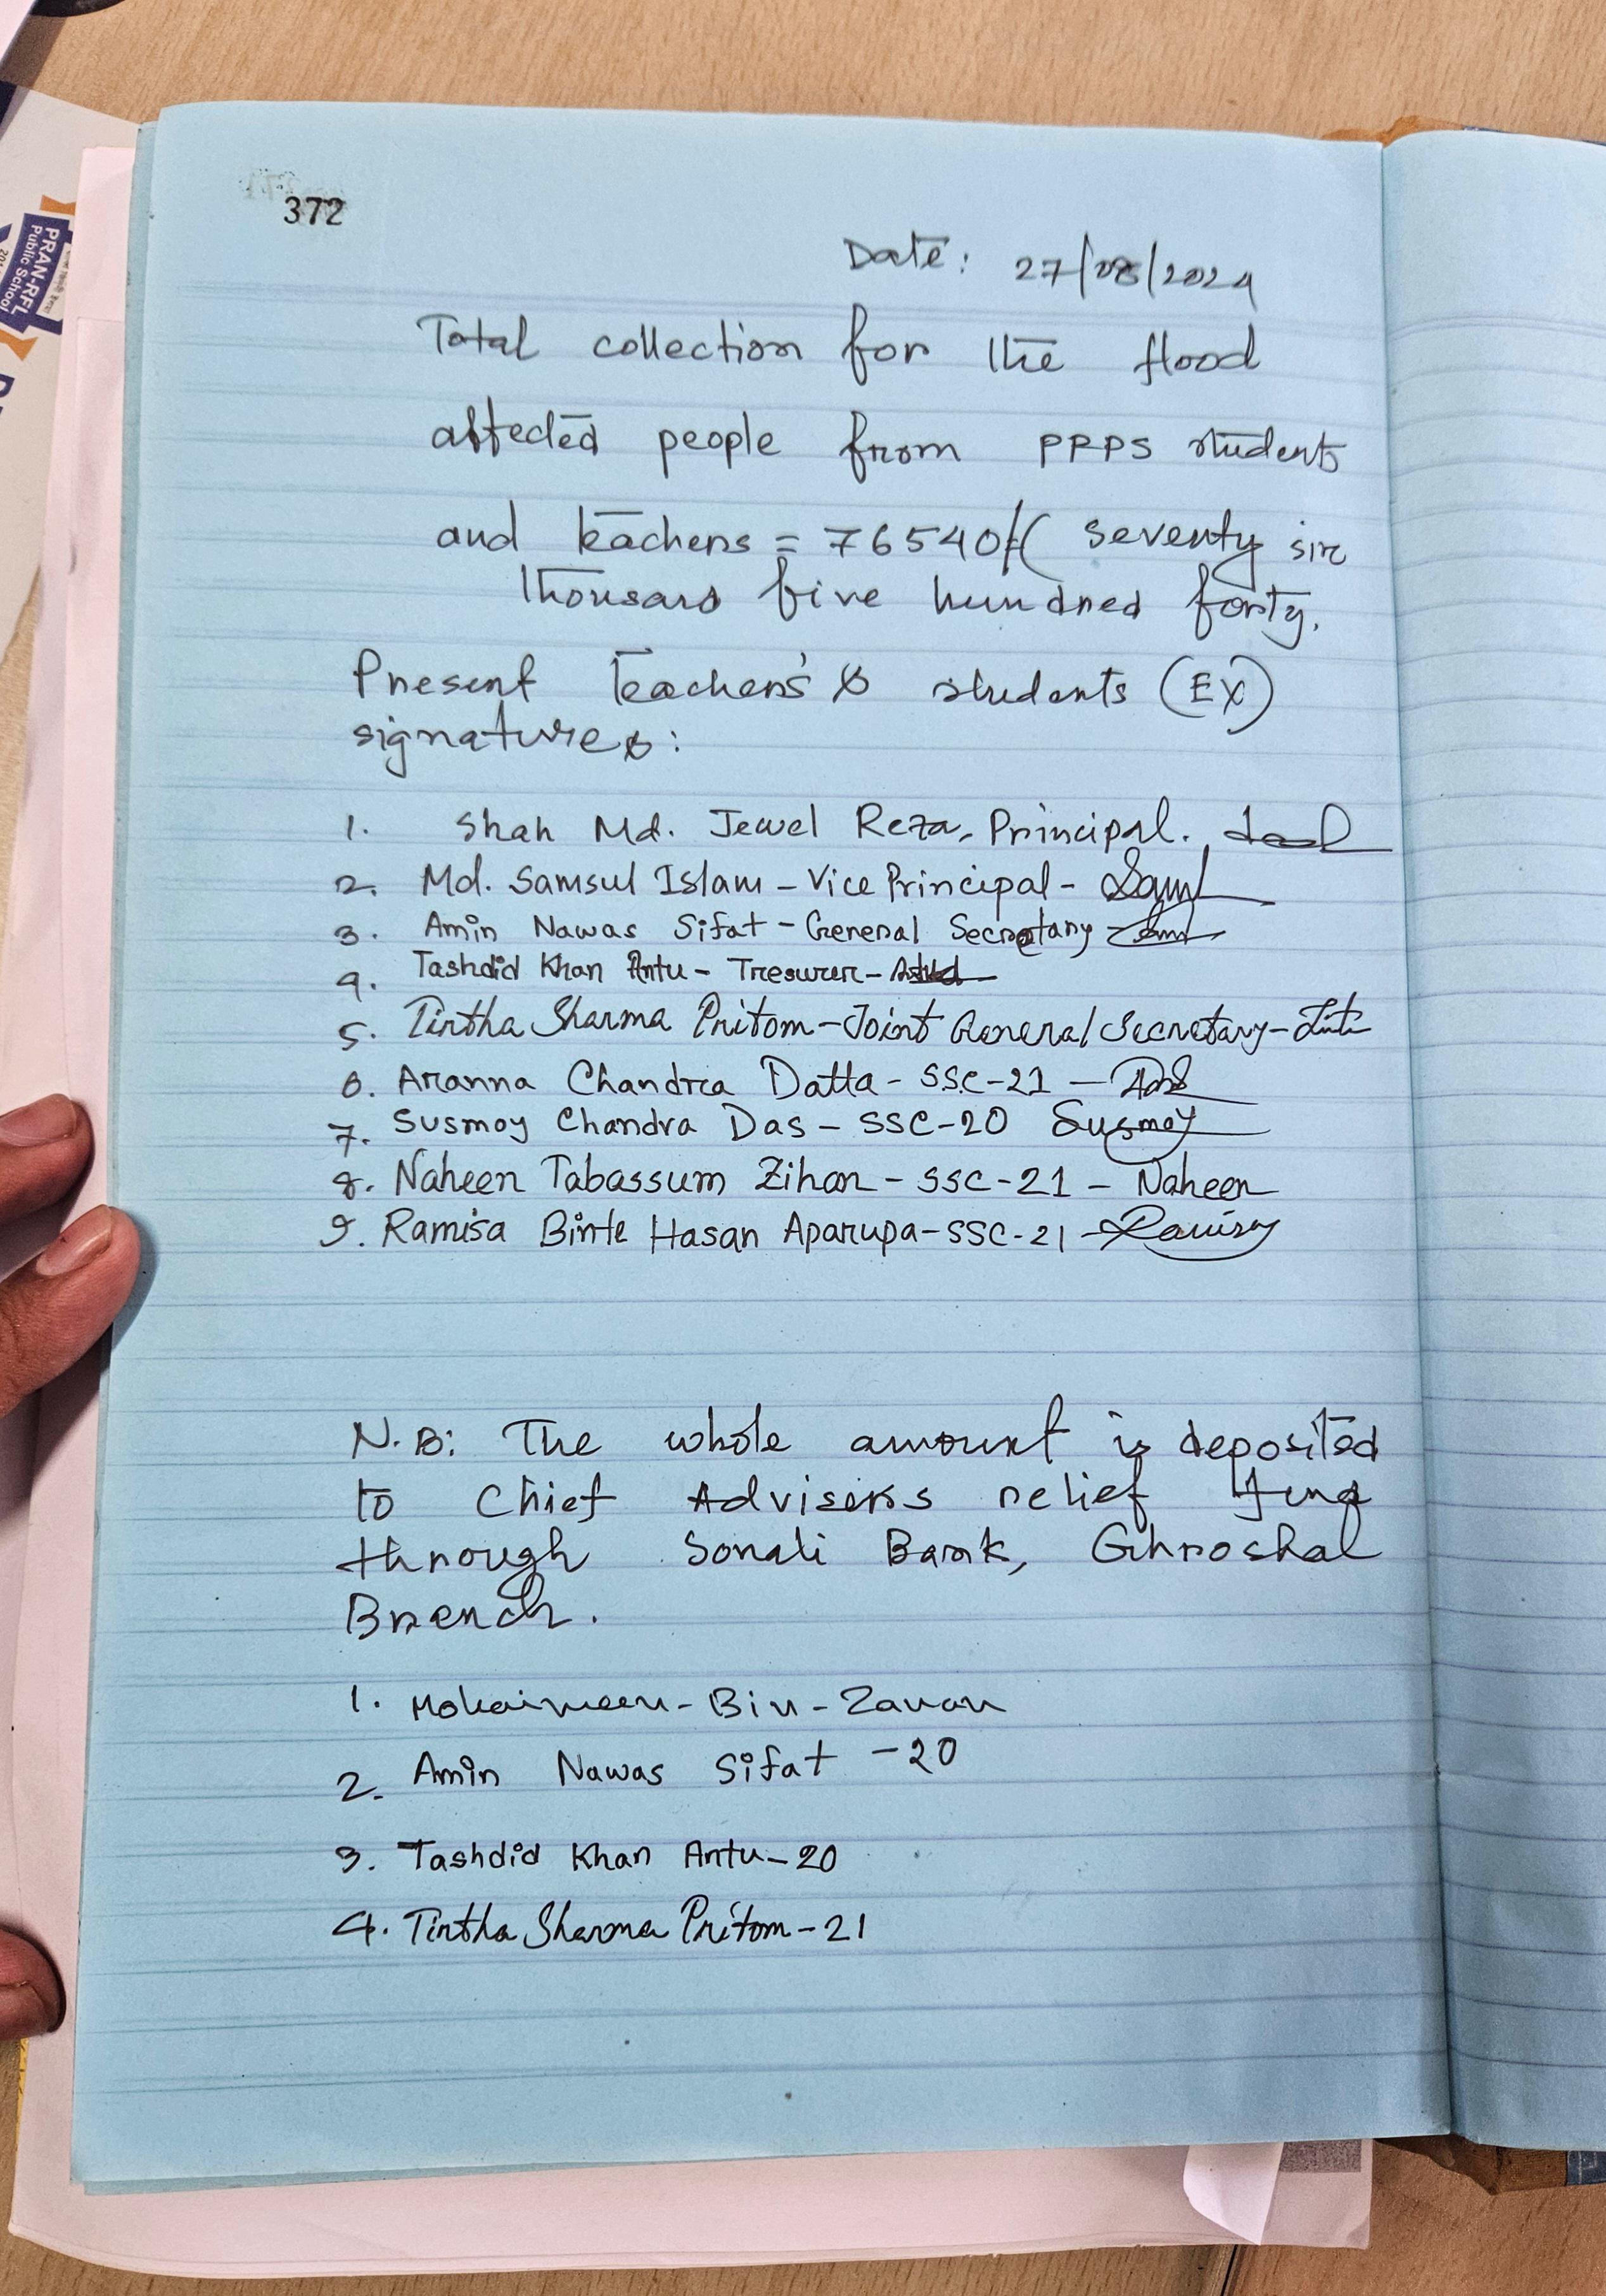 372
PRAN-RFL
Public School
Date: 27/08/2024
Total collection for the flood
affected people from PRPS students
and teachers = 76540/-( seventy six
thousand five hundred forty.
Present teachers' & students (EX)
signatures:
1. Shah Md. Jewel Reza, Principal.
2. Md. Samsul Islam - Vice Principal - Saml
3. Amin Nawas Sifat - General Secretary
4. Tashdid Khan Antu - Tresurer -
5. Tirtha Sharma Pritom - Joint General Secretary -
6. Aranna Chandra Datta - SSC-21 -
7. Susmoy Chandra Das - SSC-20 Susmoy
8. Naheen Tabassum Zihan - SSC-21 - Naheen
9. Ramisa Binte Hasan Aparupa - SSC-21 - Ramisa
N.B: The whole amount is deposited
to Chief Advisers relief fund
through Sonali Bank, Ghroshal
Branch.
1. Mohaimeen-Bin-Zaman
2. Amin Nawas Sifat -20
3. Tashdid Khan Antu-20
4. Tirtha Sharma Pritom-21